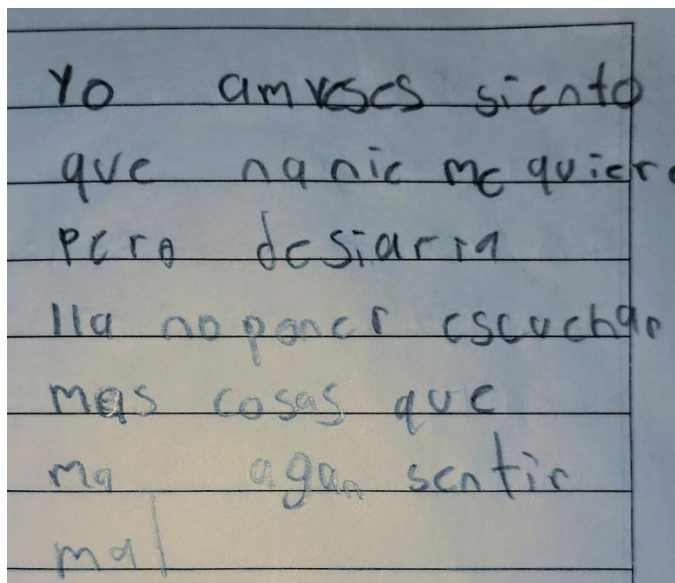 Yo amveses siento
que nanie me quiere
pero desiarria
lla no poner escuchar
mas cosas que
ma agan sentir
mal